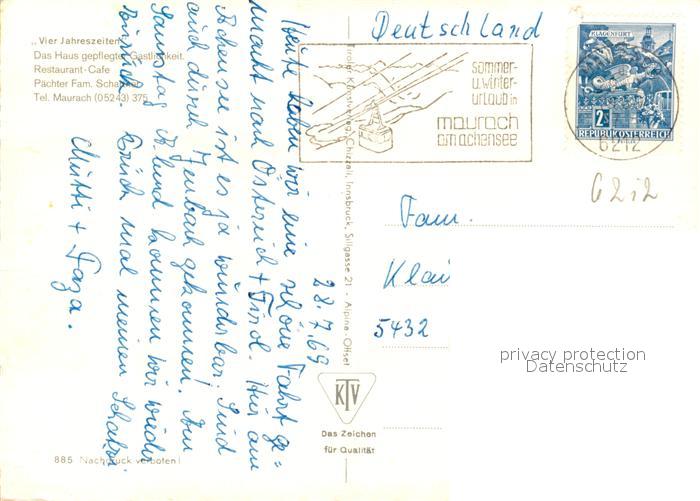 „Vier Jahreszeiten"
Das Haus gepflegter Gastlichkeit
Restaurant-Cafe
Pächter Fam.
Tel. Maurach (05243) 375
28.7.69
Heute haben wir eine schöne Fahrt ge=
macht nach Österreich + Tirol. Hier am
Achensee ist es ja wunderbar. Sind
auch durch Jenbach gekommen! Am
Samstag Abend kommen wir wieder
zurück. Drück mal meinen Schatzi
Mutti +
885 Nachdruck verboten!
Tiroler Kunstverlag Chizzali, Innsbruck, Sillgasse 21 - Alpina-Offset
KTV
Das Zeichen
für Qualität
Deutschland
sommer-
u.winter-
urlaub in
maurach
am achensee
KLAGENFURT
2S
REPUBLIK ÖSTERREICH
6212
6212
Fam.
Klai
5432
privacy protection
Datenschutz